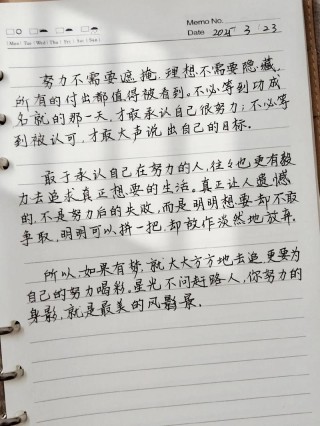 Memo No.
Date 2021 3 23
Mon / Tue / Wed / Thu / Fri / Sat / Sun
努力不需要遮掩，理想不需要隐藏，
所有的付出都值得被看到。不必等到功成
名就的那一天，才敢承认自己很努力；不必等
到被认可，才敢大声说出自己的目标。
敢于承认自己在努力的人，往往也更有毅
力去追求真正想要的生活。真正让人遗憾
的，不是努力后的失败，而是明明想要却不敢
争取，明明可以拼一把，却故作淡然地放弃。
所以，如果有梦，就大大方方地去追，更要为
自己的努力喝彩。星光不问赶路人，你努力的
身影，就是最美的风景。